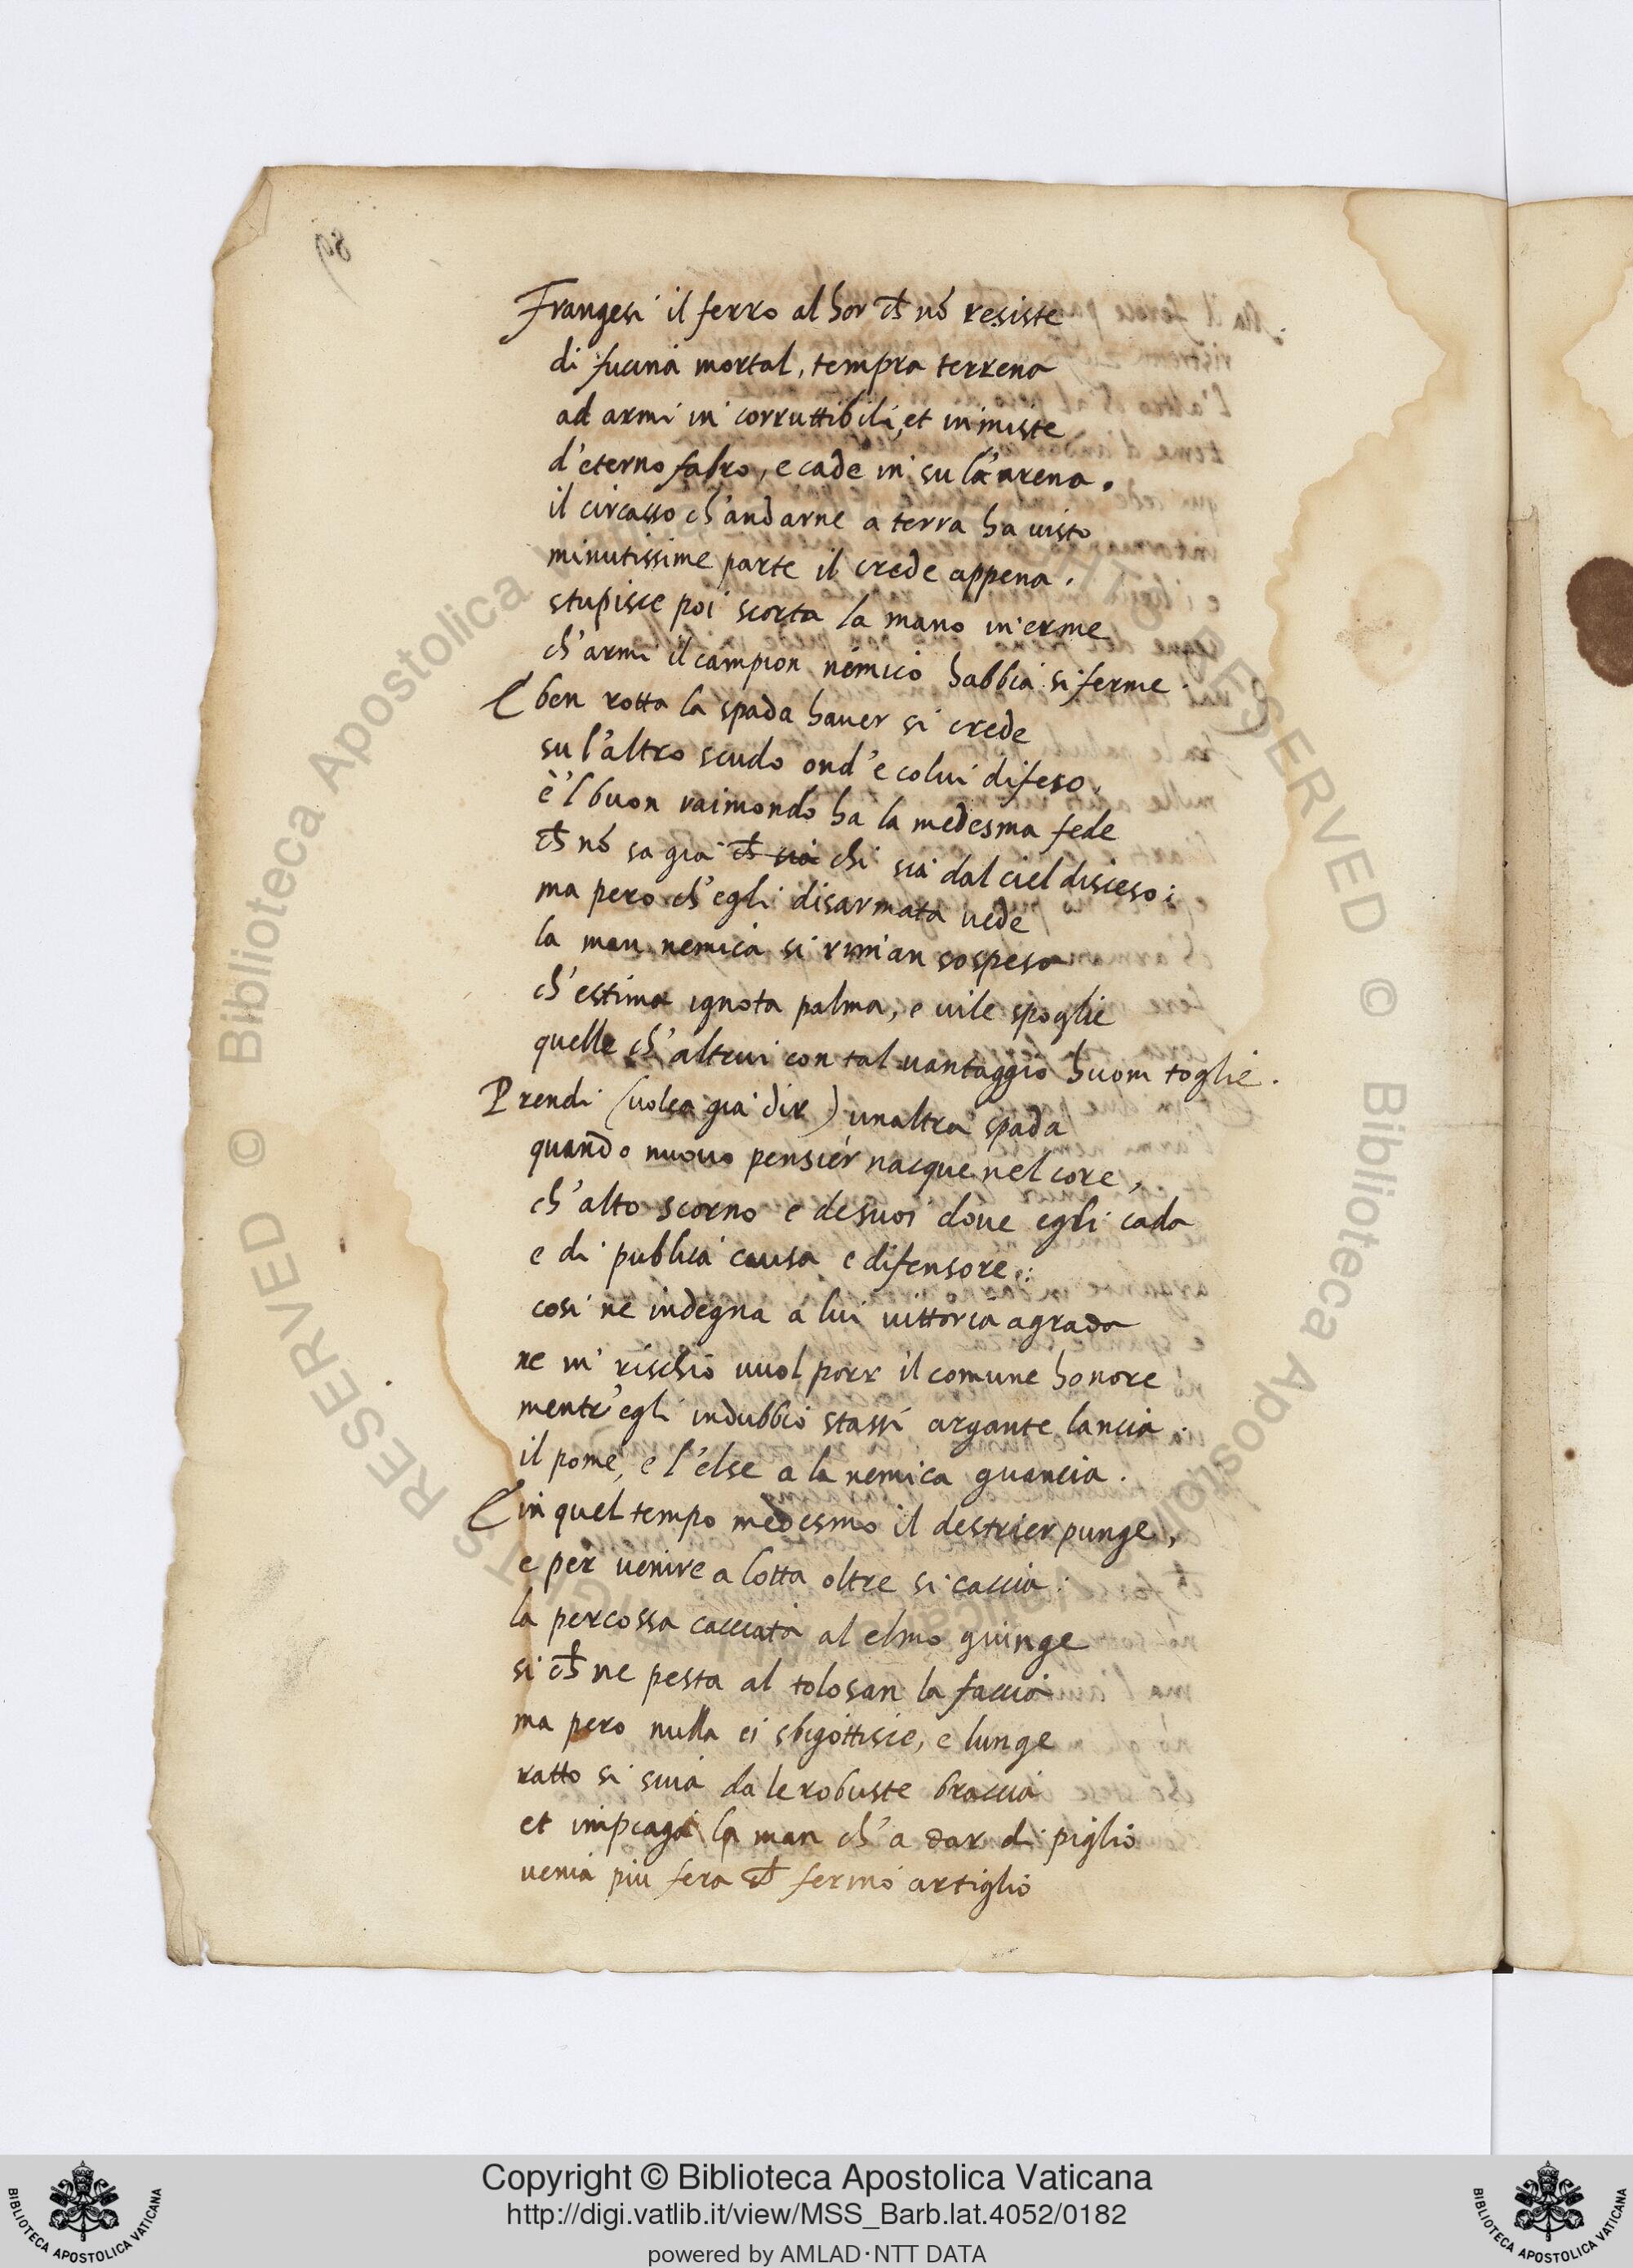 89
Frangesi il ferro al hor ch̃ nõ resiste
di fucina mortal, tempra terrena
ad armi in corruttibili, et inmiste
d'eterno fabro, e cade in su la'arena.
il circasso ch'andarne a terra ha visto
minutissime parte il crede appena.
stupisce poi scorta la mano in erme
ch'armi il campion nemico habbia si ferme.
E ben rotta la spada haver si crede
su l'altro scudo ond'e colui difeso.
e'l buon raimondo ha la medesma fede
ch̃ nõ sa gia ch̃ sia chi sia dal ciel disceso:
ma pero ch'egli disarmata vede
la man nemica si riman sospeso
ch'estima ignota palma, e vile spoglie
quelle ch'altrui con tal vantaggio huom toglie.
Prendi (volea gia dir) unaltra spada
quando nuovo pensier nacque nel core,
ch'alto scorno e desuoi dove egli cada
e di publica causa e difensore:
cosi ne indegna a lui vittoria agrada
ne in rischio vuol porr il comune honore
mentr'egli indubbio stassi argante lancia
il pome, e l'else a la nemica guancia.
E in quel tempo medesmo il destrier punge,
e per venire a lotta oltre si caccia:
la percossa cacciata al elmo giunge
si ch̃ ne pesta al tolosan la faccia
ma pero nulla ei sbigottisce, e lunge
ratto si svia da le robuste braccia
et impiaga la man ch'a dar di piglio
venia piu fera ch̃ fermo artiglio
RESERVED © Biblioteca Apostolica Vaticana
Copyright © Biblioteca Apostolica Vaticana
http://digi.vatlib.it/view/MSS_Barb.lat.4052/0182
powered by AMLAD·NTT DATA
BIBLIOTECA APOSTOLICA VATICANA
BIBLIOTECA APOSTOLICA VATICANA